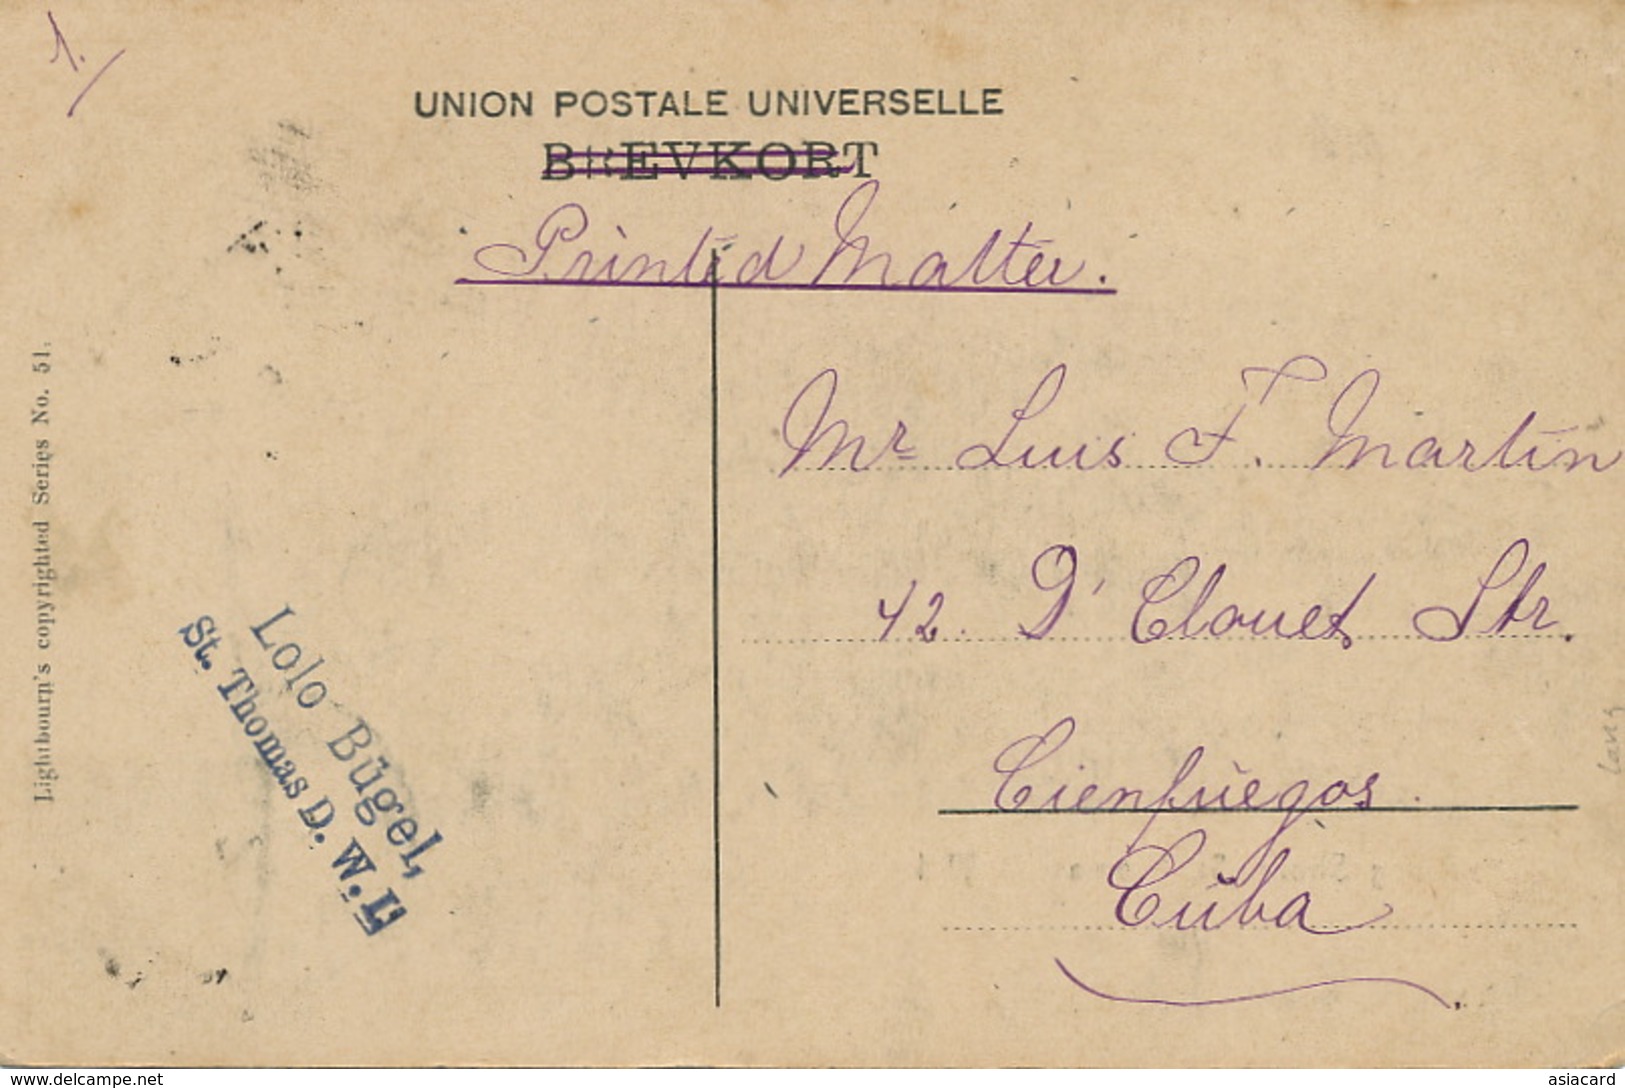 1.
UNION POSTALE UNIVERSELLE
BREVKORT
Printed Matter.
Lightbourn's copyrighted Series No. 51.
Mr Luis F. Martin
42. D'Clouet Str.
Cienfuegos
Cuba
Lolo Bügel,
St. Thomas D. W. I.
www.delcampe.net
asiacard